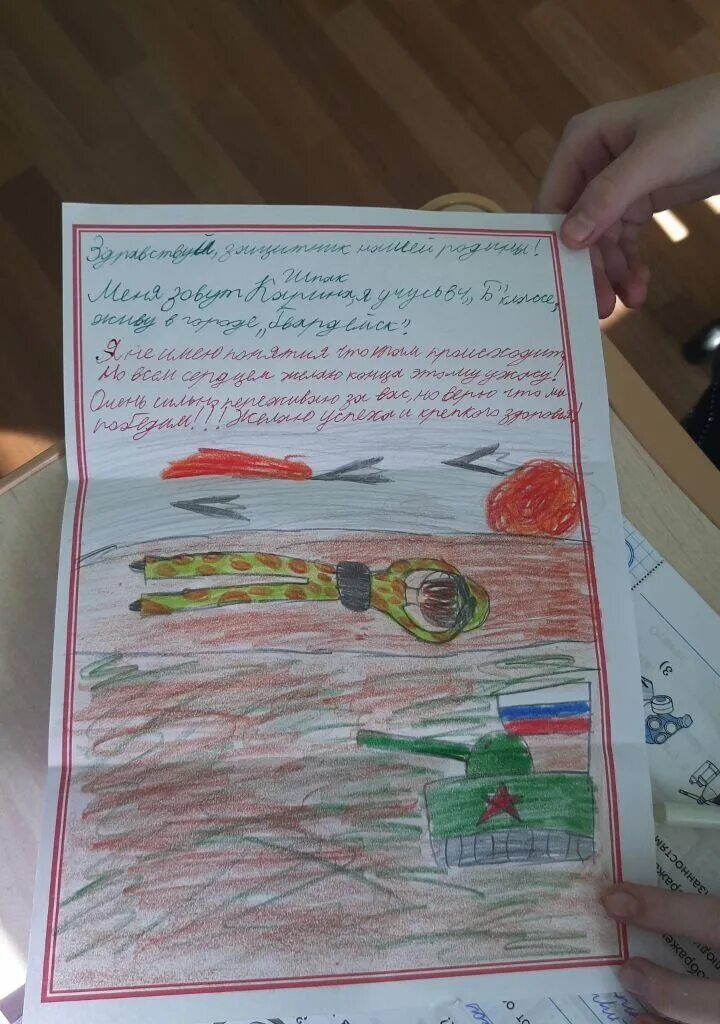 Здравствуй, защитник нашей родины!
Шпак
Меня зовут Карина я учусь в 7 „Б" классе,
живу в городе „Гвардейск".
Я не имею понятия что там происходит,
Но всем сердцем желаю конца этому ужасу!
Очень сильно переживаю за вас, но верю что мы
победим!!! Желаю успеха и крепкого здоровья!
3)